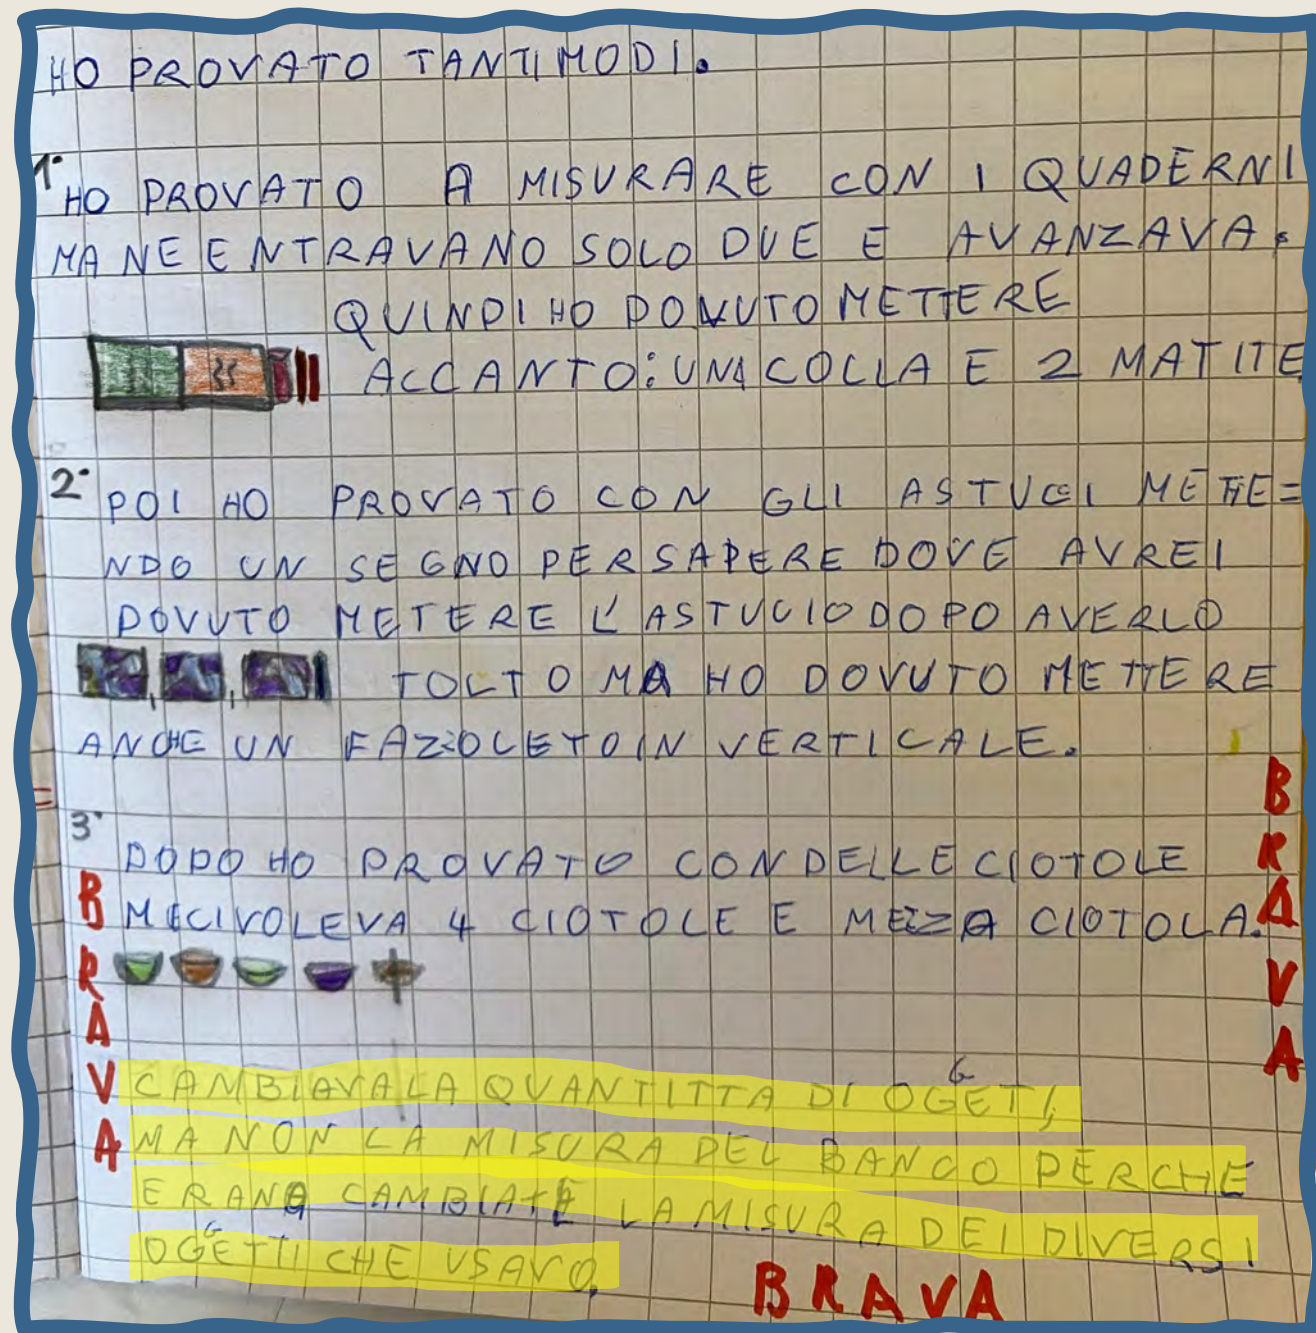 HO PROVATO TANTI MODI.
1° HO PROVATO A MISURARE CON I QUADERNI
MA NE ENTRAVANO SOLO DUE E AVANZAVA.
QUINDI HO DOVUTO METTERE
ACCANTO: UNA COLLA E 2 MATITE
2° POI HO PROVATO CON GLI ASTUCCI METTE=
NDO UN SEGNO PER SAPERE DOVE AVREI
DOVUTO METERE L'ASTUCIO DOPO AVERLO
TOLTO MA HO DOVUTO METTERE
ANCHE UN FAZZOLETO IN VERTICALE.
3° DOPO HO PROVATO CON DELLE CIOTOLE
ME CI VOLEVA 4 CIOTOLE E MEZZA CIOTOLA.
CAMBIAVA LA QUANTITTA DI OGGETI,
MA NON LA MISURA DEL BANCO PERCHE
ERANO CAMBIATE LA MISURA DEI DIVERSI
OGGETTI CHE USAVO.
BRAVA
BRAVA
BRAVA